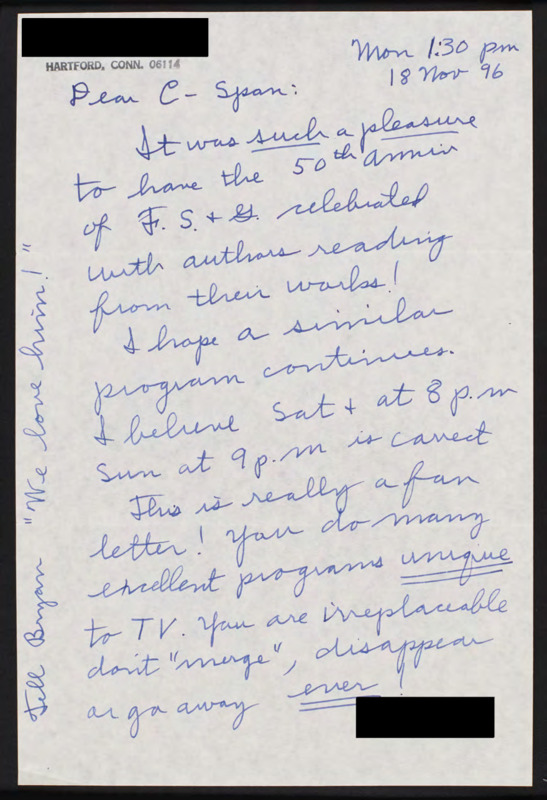 HARTFORD, CONN. 06114
Mon 1:30 pm
18 Nov 96
Dear C-Span:
It was such a pleasure
to have the 50th Anniv
of F. S. + G. celebrated
with authors reading
from their works!
I hope a similar
program continues.
I believe Sat + at 8 p.m
Sun at 9 p.m is correct
This is really a fan
letter! You do many
excellent programs unique
to TV. You are irreplaceable
don't "merge", disappear
or go away ever!
Tell Bryan "We love him!"